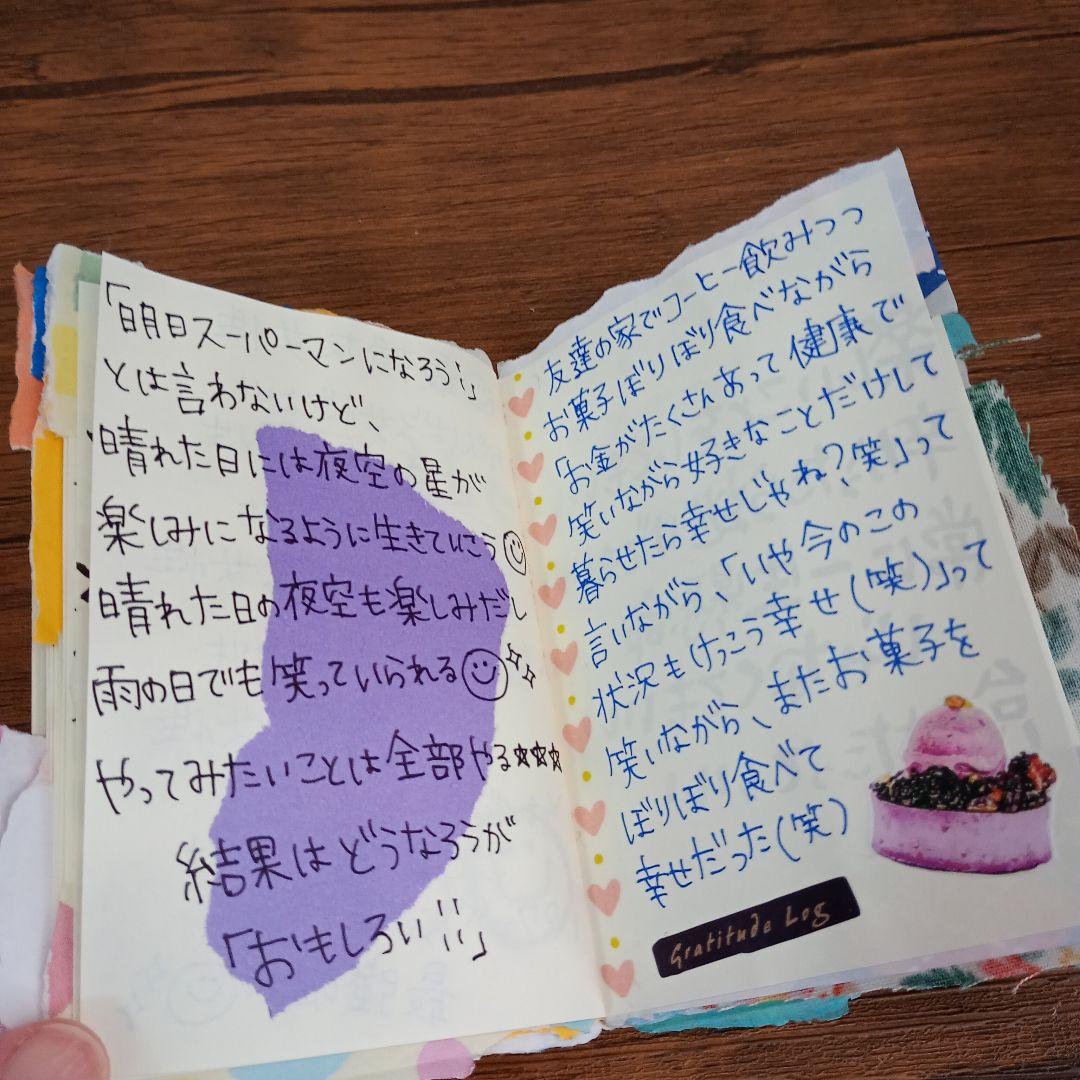 「明日スーパーマンになろう!」
とは言わないけど、
晴れた日には夜空の星が
楽しみになるように生きていこう
晴れた日の夜空も楽しみだし
雨の日でも笑っていられる
やってみたいことは全部やる☆☆☆
結果はどうなろうが
「おもしろい!!」
友達の家でコーヒー飲みつつ
お菓子ぼりぼり食べながら
「お金がたくさんあって健康で
笑いながら好きなことだけして
暮らせたら幸せじゃね?笑」って
言いながら、「いや今のこの
状況もけっこう幸せ(笑)」って
笑いながら、またお菓子を
ぼりぼり食べて
幸せだった(笑)
Gratitude Log